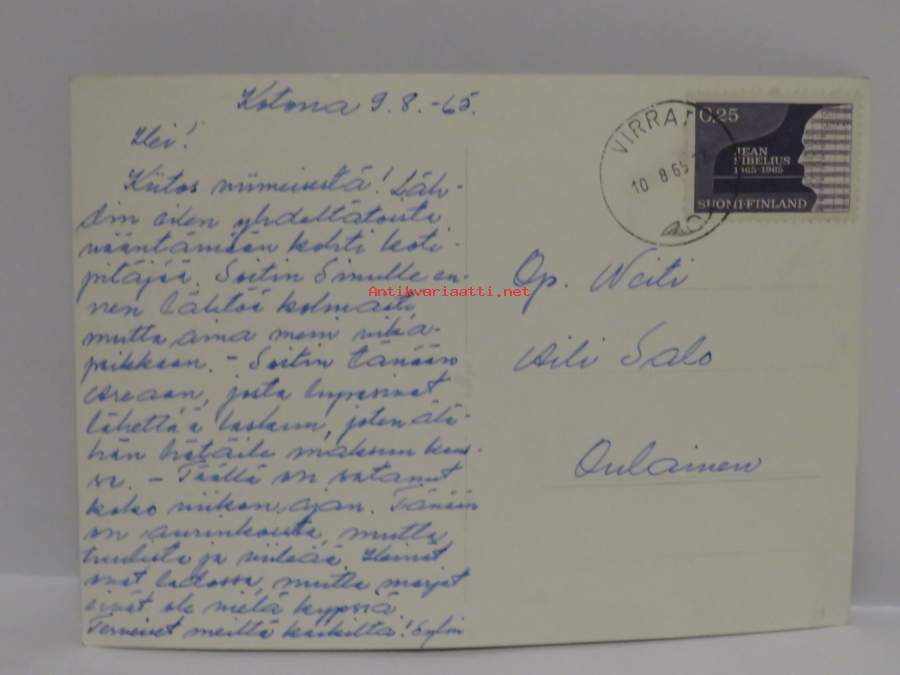 Kotona 9.8.-65.
Hei!
Kiitos viimeisestä! Läh-
din eilen yhdeltätoista
vääntämään kohti koti-
pitäjää. Soitin Sinulle en-
nen lähtöä kolmasti
mutta aina meni vikā-
paikkaan. - Soitin tänään
josta lupasivat
lähettää laskun, joten älä-
hän hätäile maksun kans-
sa. - Täällä on satanut
koko viikon ajan. Tänään
on aurinkoista, mutta
tuulista ja viileää. Heinät
ovat ladossa, mutta marjat
eivät ole vielä kypsiä.
Terveiset meiltä kaikilta!
VIRRAT
10.8.65
0.25
JEAN
SIBELIUS
1865-1965
SUOMI-FINLAND
Op. Neiti
Aili Salo
Oulainen
Antikvariaatti.net